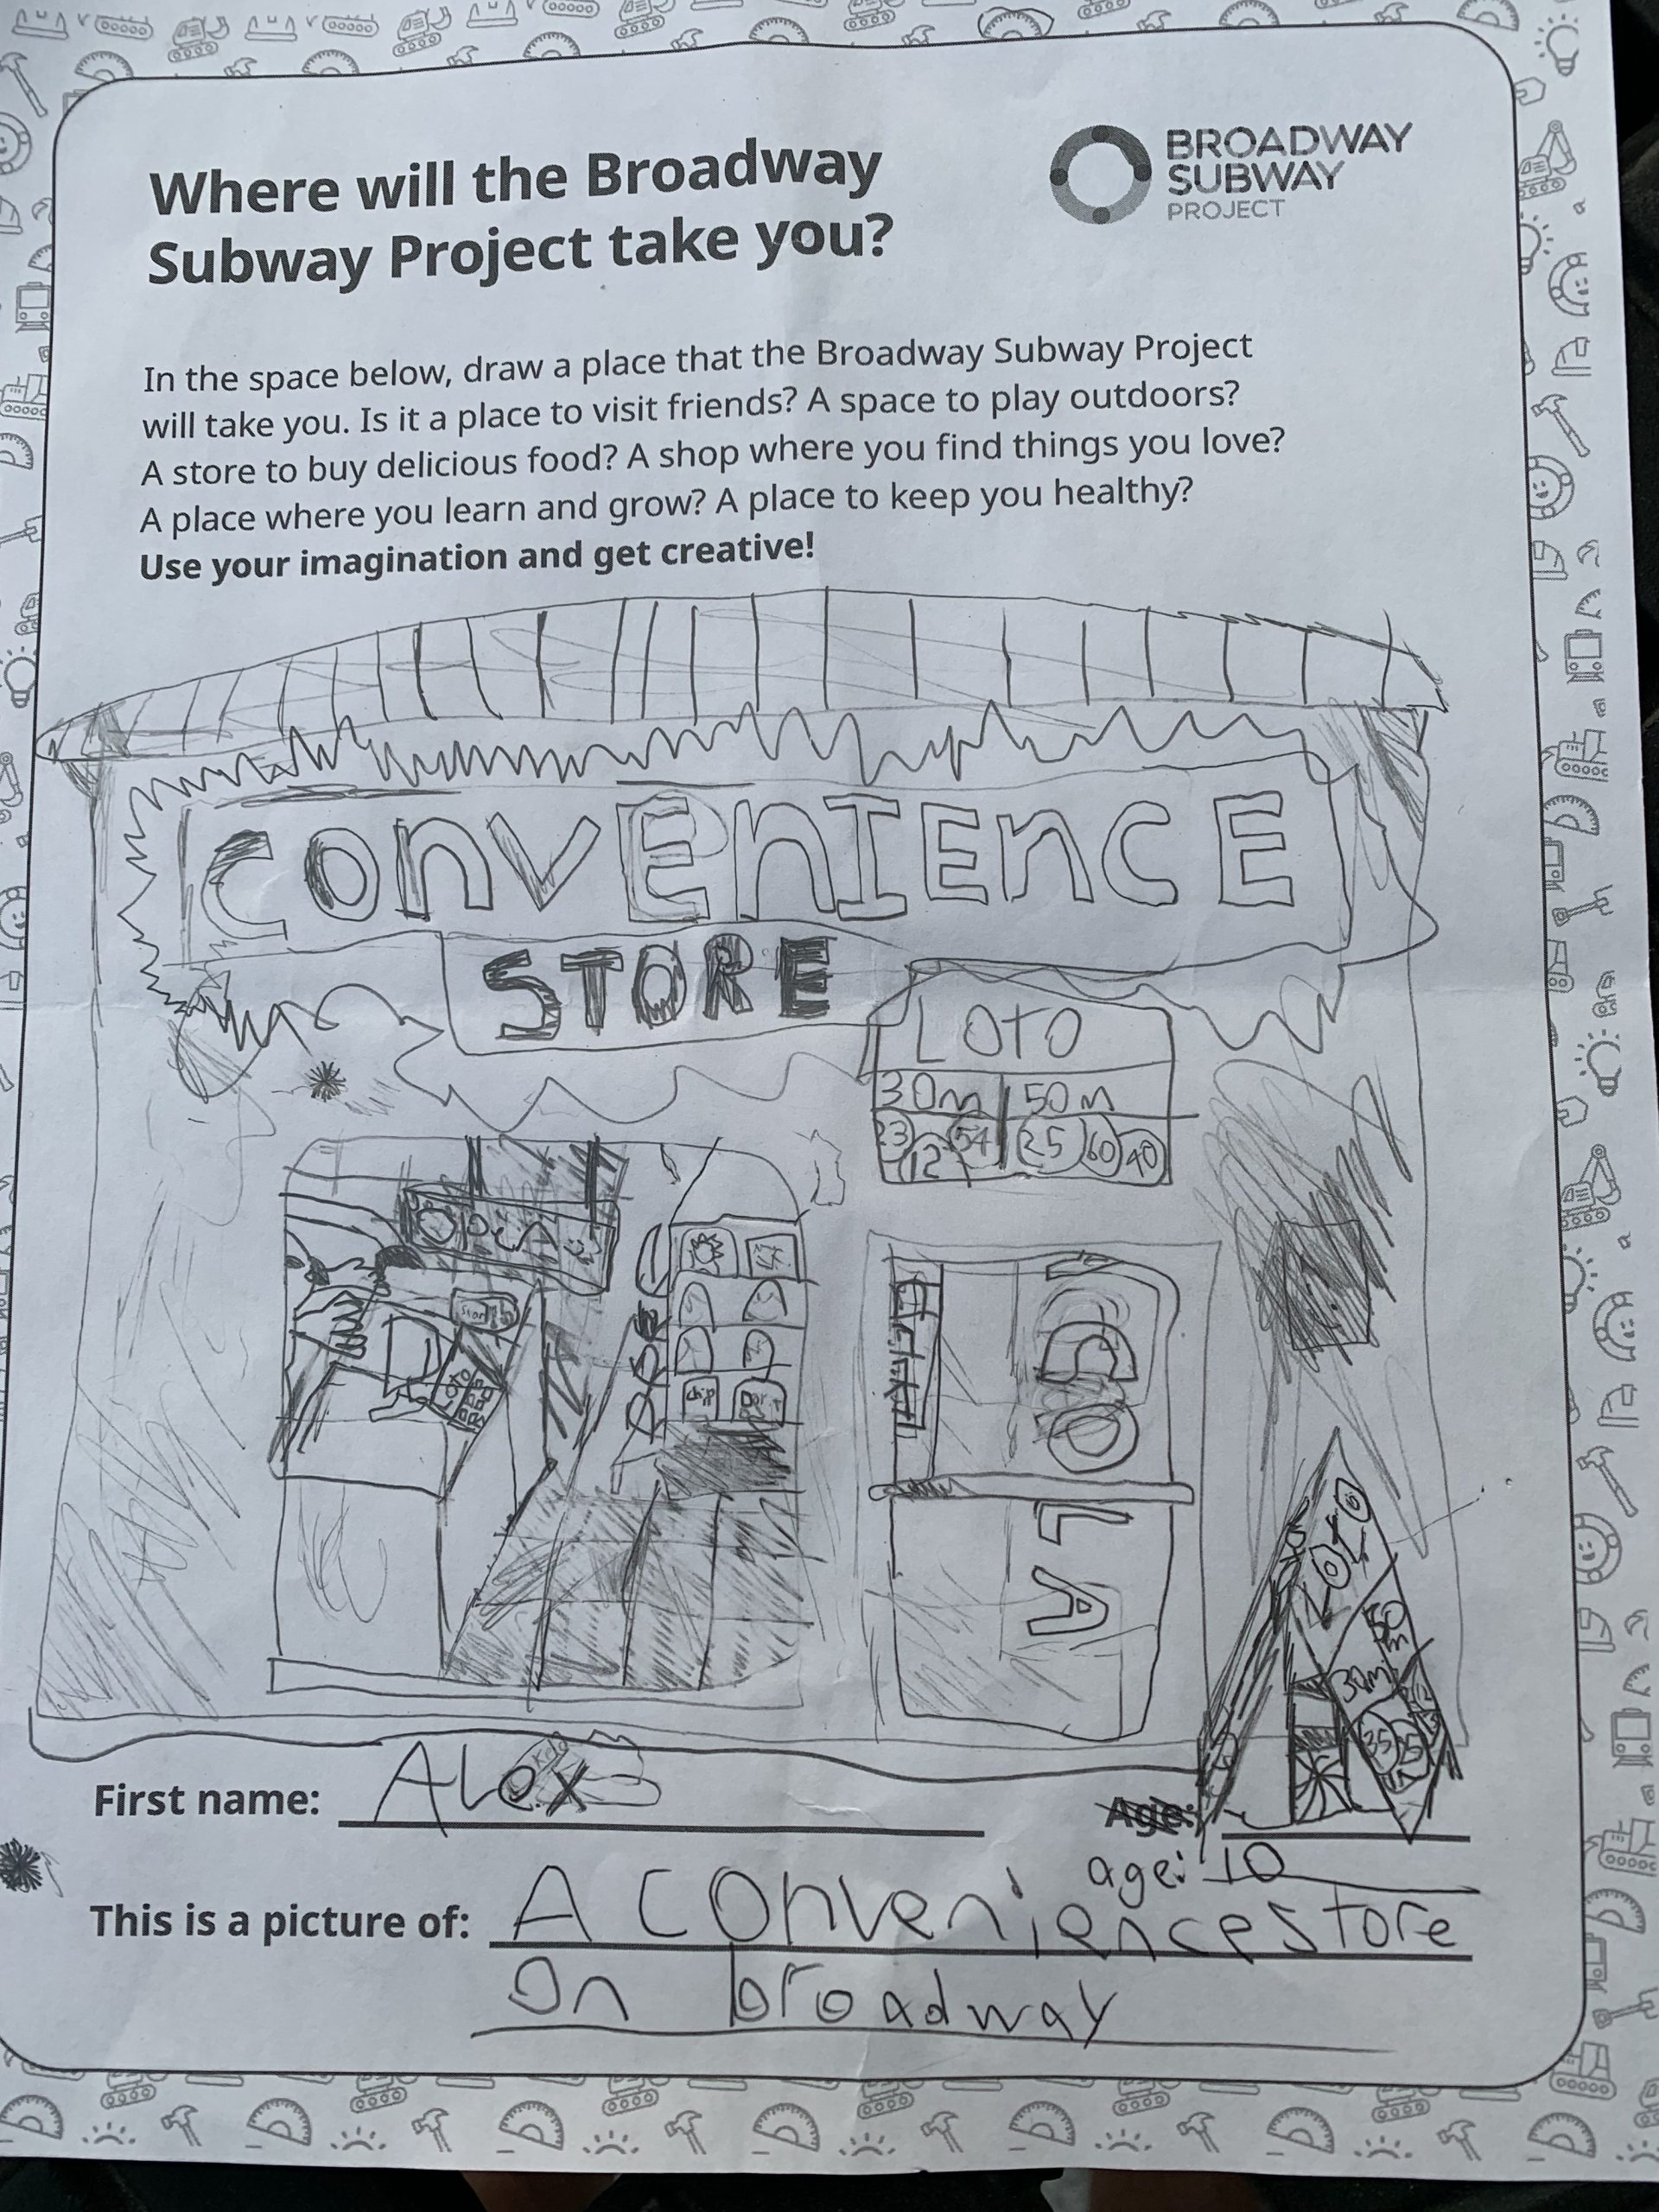 Where will the Broadway
Subway Project take you?
BROADWAY
SUBWAY
PROJECT
In the space below, draw a place that the Broadway Subway Project
will take you. Is it a place to visit friends? A space to play outdoors?
A store to buy delicious food? A shop where you find things you love?
A place where you learn and grow? A place to keep you healthy?
Use your imagination and get creative!
ConvEnIEnCE
STORE
LOTO
30m 50m
23 12 54 25 60 40
Open
LOTO
chip
COLA
LOTO
50m
30m
35 25
First name: Alex
Age:
age: 10
This is a picture of: A Convenience store
On broadway